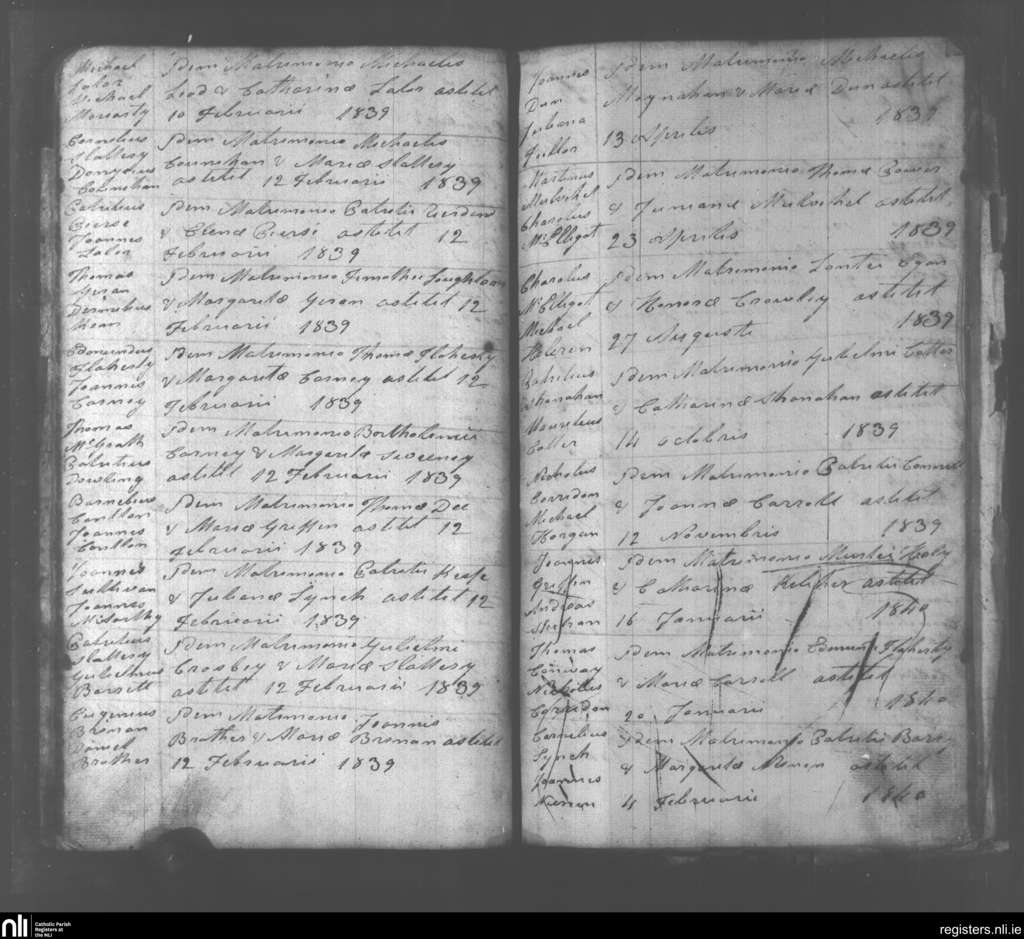 Michael
Lalor
Michael
Moriarty
Idem Matrimonio Michaelis
Lead & Catharinæ Lalor astitit
10 Februarii 1839
Cornelius
Slattery
Dionysius
Counihan
Idem Matrimonio Michaelis
Counihan & Mariæ Slattery
astitit 12 Februarii 1839
Patritius
Pierse
Joannes
Lalor
Idem Matrimonio Patritii
& Elenæ Pierse astitit 12
Februarii 1839
Thomas
Geran
Dermitius
Idem Matrimonio Timothei Loughlan
& Margaretæ Geran astitit 12
Februarii 1839
Edmundus
Flaherty
Joannis
Carney
Idem Matrimonio Thomæ Flaherty
& Margaretæ Carney astitit 12
Februarii 1839
Thomas
McGrath
Patritius
Dowling
Idem Matrimonio Bartholomeii
Carney & Margaretæ Sweeney
astitit 12 Februarii 1839
Barnebus
Conllon
Joannes
Conllon
Idem Matrimonio Thomæ Dee
& Mariæ Griffin astitit 12
Februarii 1839
Joannes
Sullivan
Joannes
McCarthy
Idem Matrimonio Patritii
& Julianæ Lynch astitit 12
Februarii 1839
Patritius
Slattery
Gulielmus
Barrett
Idem Matrimonio Gulielmi
Crosbey & Mariæ Slattery
astitit 12 Februarii 1839
Eugenius
Brosnan
Daniel
Brother
Idem Matrimonio Joannis
Brother & Mariæ Brosnan astitit
12 Februarii 1839
Joannes
Dun
Juliana
Idem Matrimonio Michaelis
Moynahan & Mariæ Dun astitit
13 Aprilis 1839
Martinus
Mulvihel
Charolus
McElligot
Idem Matrimonio Thomæ
& Mulvihel astitit
23 Aprilis 1839
Charolus
McElligot
Michael
Haleren
Idem Matrimonio Egan
& Honoræ Crowley astitit
27 Auguste 1839
Patritius
Shanahan
Mauritius
Cotter
Idem Matrimonio Gulielmi Cotter
& Catharinæ Shanahan astitit
14 Octobris 1839
Nicholus
Corridon
Michael
Horgan
Idem Matrimonio Patritii
& Joannæ Carroll astitit
12 Novembris 1839
Joannes
Griffin
Andreas
Sheehan
Idem Matrimonio
& Catharinæ Keliher astitit
16 Januarii 1840
Thomas
Conway
Nicholus
Corridon
Idem Matrimonio Edmundi Flaherty
& Mariæ Carroll astitit
20 Januarii 1840
Cornelius
Lynch
Joannes
Idem Matrimonio Patritii Barry
& Margaretæ astitit
4 Februarii 1840
nli
Catholic Parish
Registers at
the NLI
registers.nli.ie